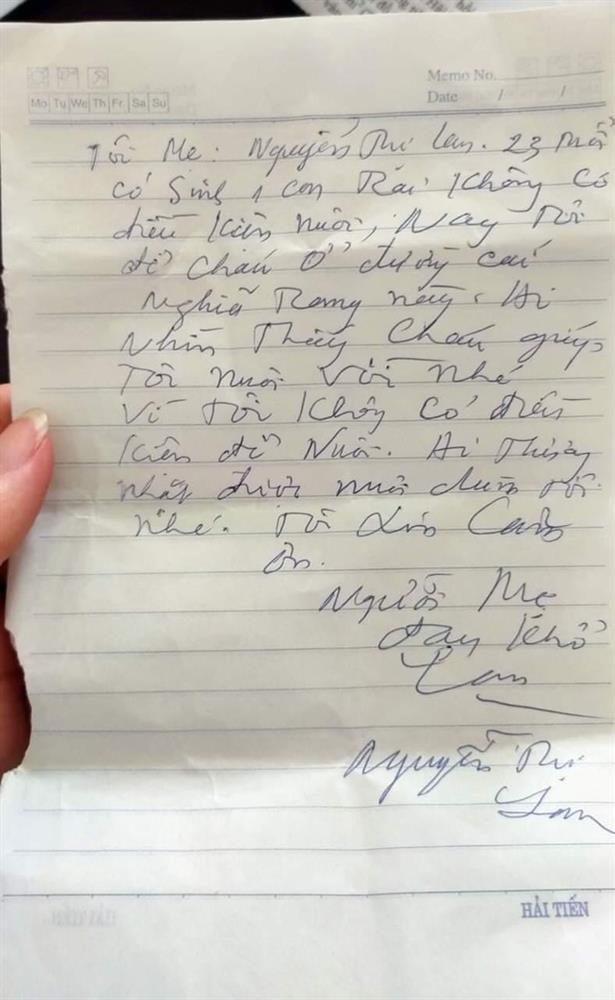 Memo No.
Mo Tu We Th Fr Sa Su
Date / /
Tôi Mẹ: Nguyễn Thị Lan. 23 tuổi
có Sinh 1 con Rai không có
điều kiện nuôi, Nay tôi
để cháu ở đường cái
Nghĩa Rang này. Ai
Nhìn Thấy Cháu giúp
Tôi nuôi Với Nhé
Vì tôi không có điều
kiện để Nuôi. Ai Thấy
nhặt được nuôi dùm tôi
Nhé. Tôi Xin Cảm
ơn.
Người Mẹ
đau khổ
Lan
Nguyễn Thị
Lan
HẢI TIẾN